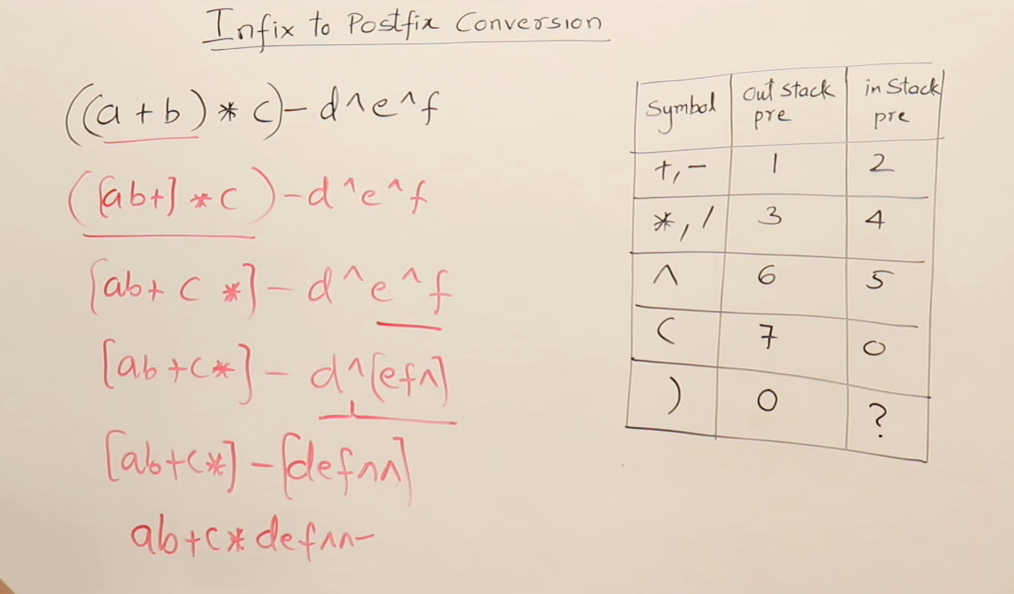 Infix to Postfix Conversion
((a + b) * c) - d ^ e ^ f
([ab+] * c) - d ^ e ^ f
[ab+ c *] - d ^ e ^ f
[ab + c *] - d ^ [ef^]
[ab+c*] - [def^^]
ab+c*def^^-
Symbol | out stack pre | in Stack pre
+, - | 1 | 2
*, / | 3 | 4
^ | 6 | 5
( | 7 | 0
) | 0 | ?